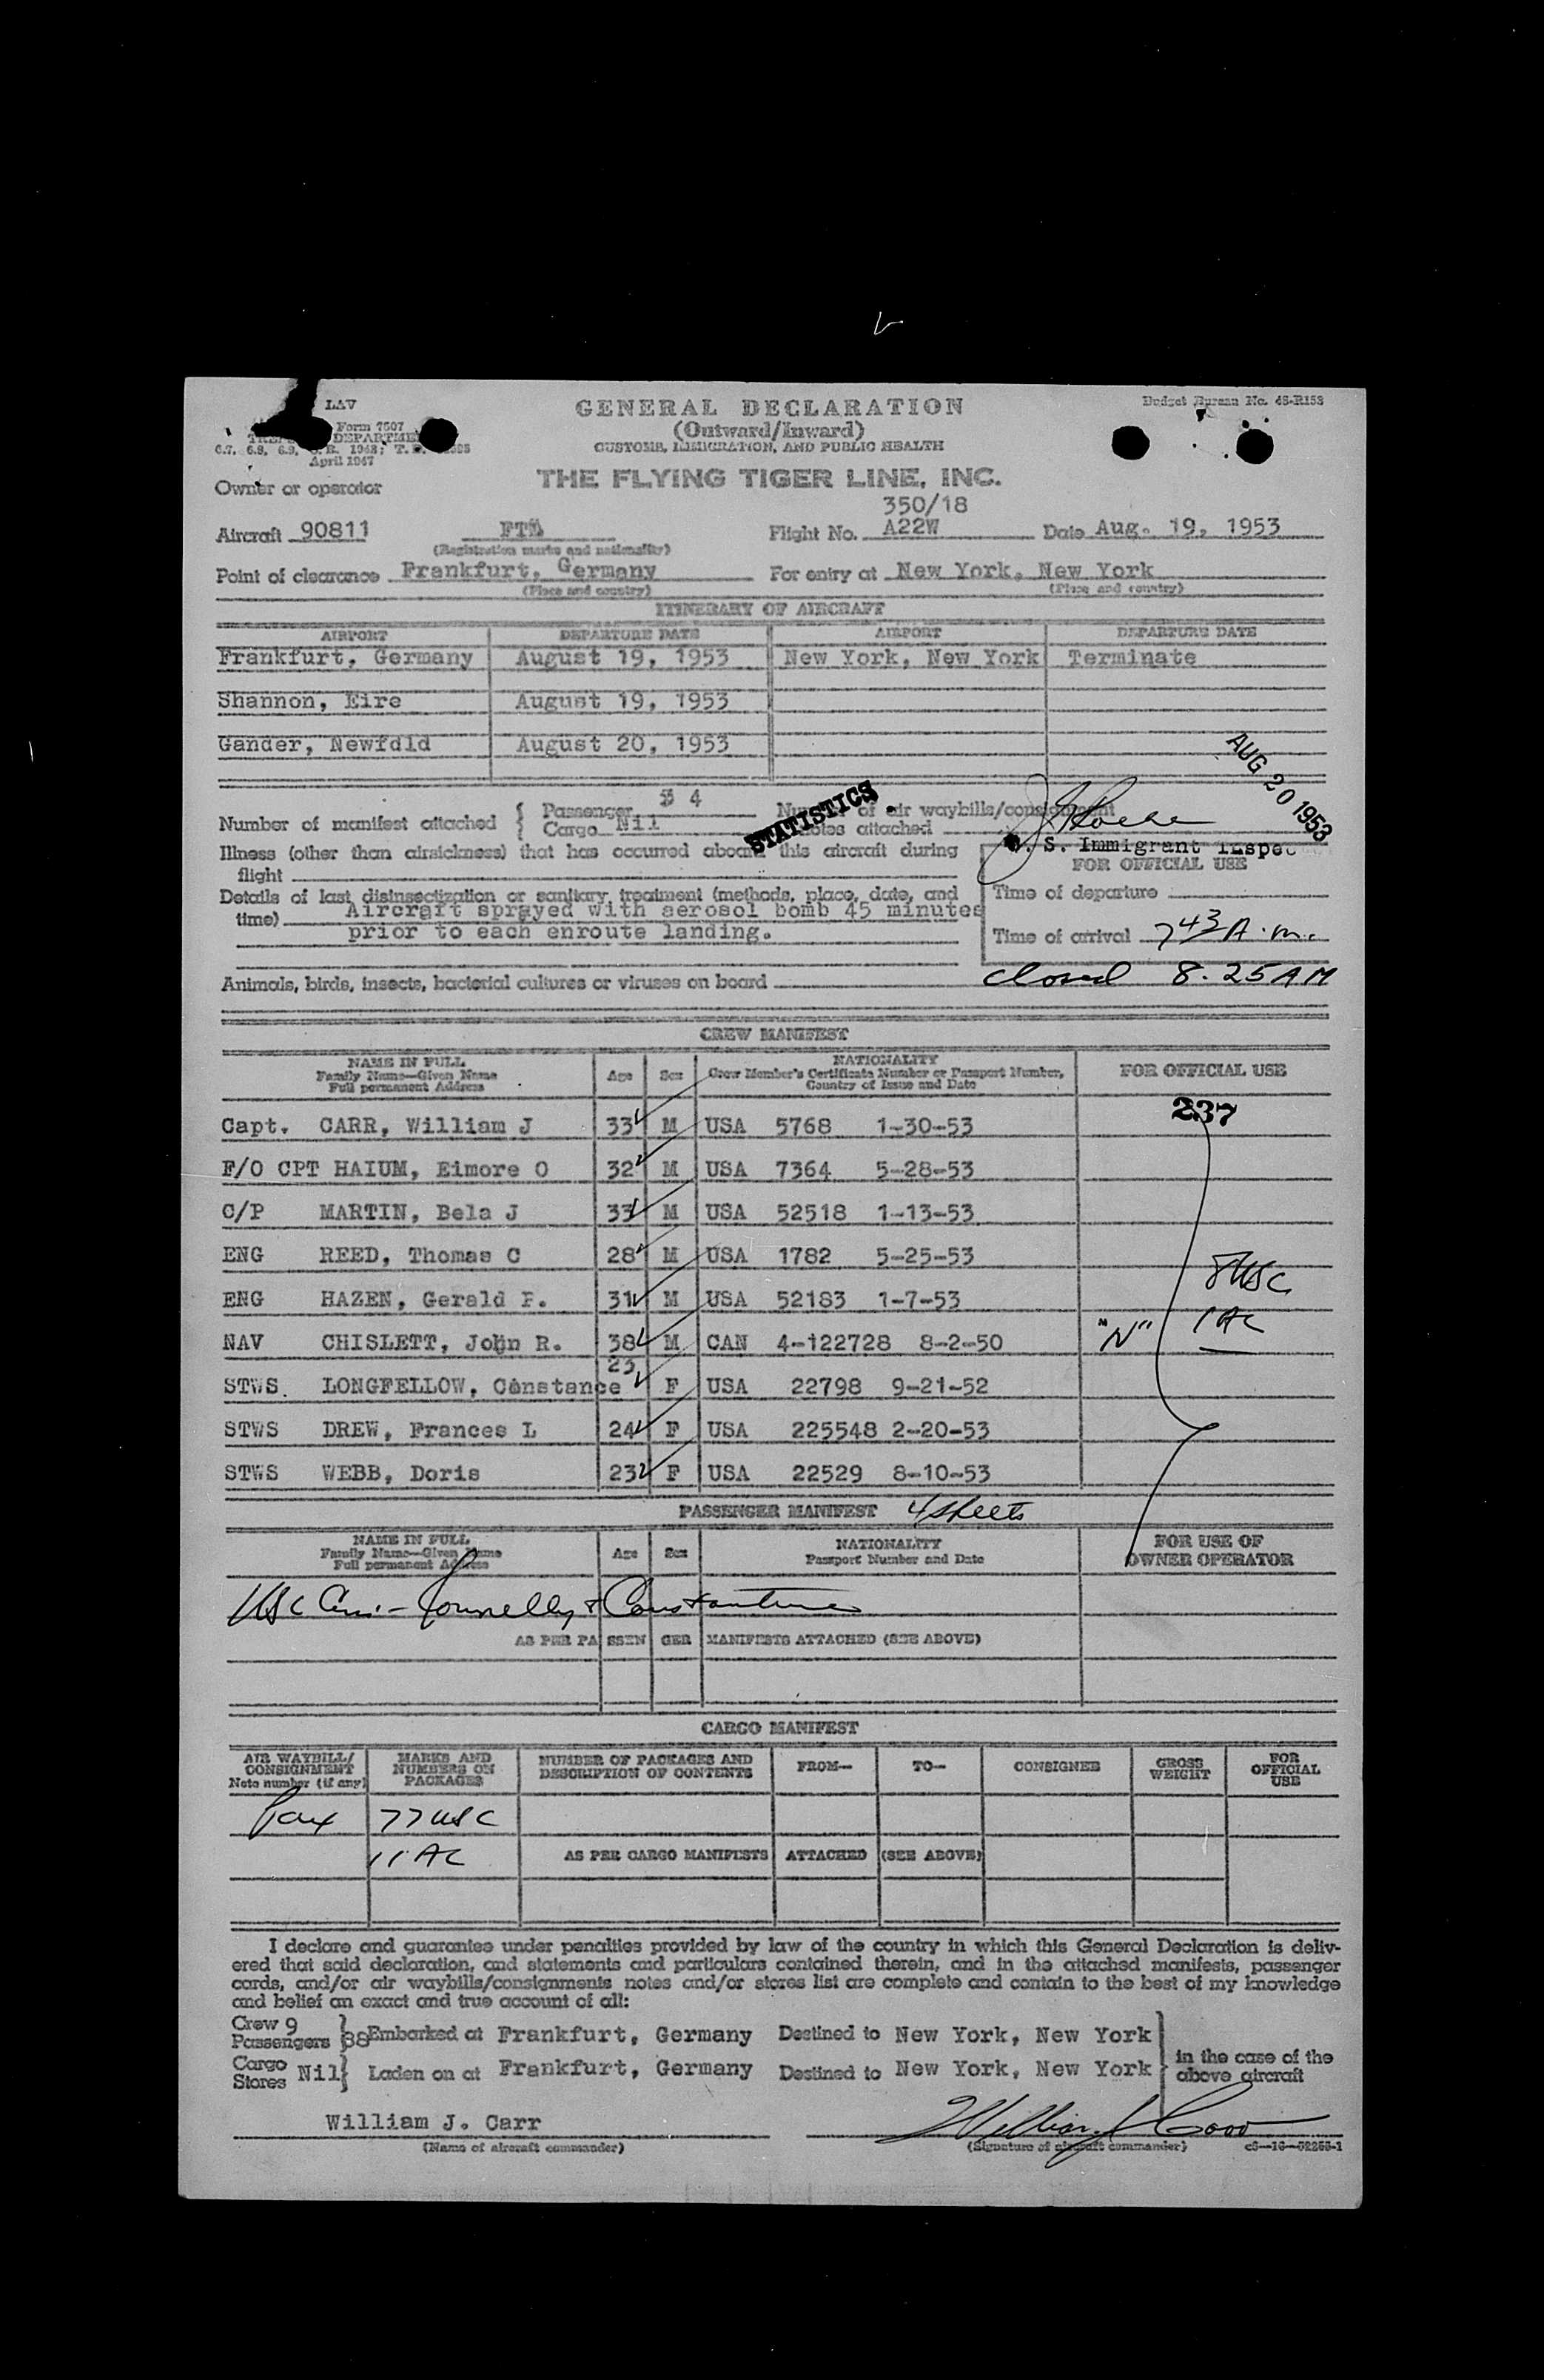 LAV
GENERAL DECLARATION
Budget Bureau No. 48-R153
Form 7507
(Outward/Inward)
DEPARTME
CUSTOMS, IMMIGRATION, AND PUBLIC HEALTH
April 1947
THE FLYING TIGER LINE, INC.
Owner or operator
350/18
Aircraft 90811 FTL Flight No. A22W Date Aug. 19, 1953
(Registration marks and nationality)
Point of clearance Frankfurt, Germany For entry at New York, New York
(Place and country) (Place and country)
ITINERARY OF AIRCRAFT
AIRPORT DEPARTURE DATE AIRPORT DEPARTURE DATE
Frankfurt, Germany August 19, 1953 New York, New York Terminate
Shannon, Eire August 19, 1953
Gander, Newfdld August 20, 1953
AUG 20 1953
Number of manifest attached { Passenger 4
Cargo Nil
STATISTICS
Number of air waybills/consignment
notes attached
S. Immigrant Inspec
Illness (other than airsickness) that has occurred aboard this aircraft during
flight
FOR OFFICIAL USE
Details of last disinsectization or sanitary treatment (methods, place, date, and
time) Aircraft sprayed with aerosol bomb 45 minutes
prior to each enroute landing.
Time of departure
Time of arrival 7 43 A.m.
closed 8.25 AM
Animals, birds, insects, bacterial cultures or viruses on board
CREW MANIFEST
NAME IN FULL
Family Name—Given Name
Full permanent Address
Age Sex
NATIONALITY
Crew Member's Certificate Number or Passport Number,
Country of Issue and Date
FOR OFFICIAL USE
237
Capt. CARR, William J 33 M USA 5768 1-30-53
F/O CPT HAIUM, Elmore O 32 M USA 7364 5-28-53
C/P MARTIN, Bela J 33 M USA 52518 1-13-53
ENG REED, Thomas C 28 M USA 1782 5-25-53
8 USC
ENG HAZEN, Gerald F. 31 M USA 52183 1-7-53
NAV CHISLETT, John R. 38 M CAN 4-122728 8-2-50 "N" 1 AC
STWS. LONGFELLOW, Constance 23 F USA 22798 9-21-52
STWS DREW, Frances L 24 F USA 225548 2-20-53
STWS WEBB, Doris 23 F USA 22529 8-10-53
PASSENGER MANIFEST 4 sheets
NAME IN FULL
Family Name—Given Name
Full permanent Address
Age Sex
NATIONALITY
Passport Number and Date
FOR USE OF
OWNER OPERATOR
USC
AS PER PASSENGER MANIFESTS ATTACHED (SEE ABOVE)
CARGO MANIFEST
AIR WAYBILL/
CONSIGNMENT
Note number (if any)
MARKS AND
NUMBERS ON
PACKAGES
NUMBER OF PACKAGES AND
DESCRIPTION OF CONTENTS
FROM— TO— CONSIGNEE
GROSS
WEIGHT
FOR
OFFICIAL
USE
Pax 77 USC
11 AC AS PER CARGO MANIFESTS ATTACHED (SEE ABOVE)
I declare and guarantee under penalties provided by law of the country in which this General Declaration is deliv-
ered that said declaration, and statements and particulars contained therein, and in the attached manifests, passenger
cards, and/or air waybills/consignments notes and/or stores list are complete and contain to the best of my knowledge
and belief an exact and true account of all:
Crew 9
Passengers 88 Embarked at Frankfurt, Germany Destined to New York, New York
Cargo
Stores Nil Laden on at Frankfurt, Germany Destined to New York, New York
in the case of the
above aircraft
William J. Carr
(Name of aircraft commander) (Signature of aircraft commander)